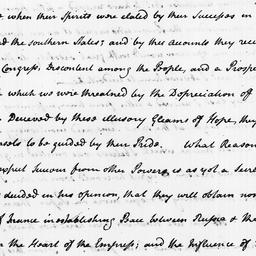 when their Spirits were elated by their Success in
the southern States; and by the accounts they rec
Congress, Discontent among the People, and a Prospe
which we were threatned by the Depreciation of
Deceived by these illusory Gleams of Hope, they
to be guided by their Pride. What Reason
Succour from other Powers is as yet a Secre
decided in his opinion, that they will obtain non
of France in establishing Peace between Russia & the
the Heart of the Empress; and the Influence of